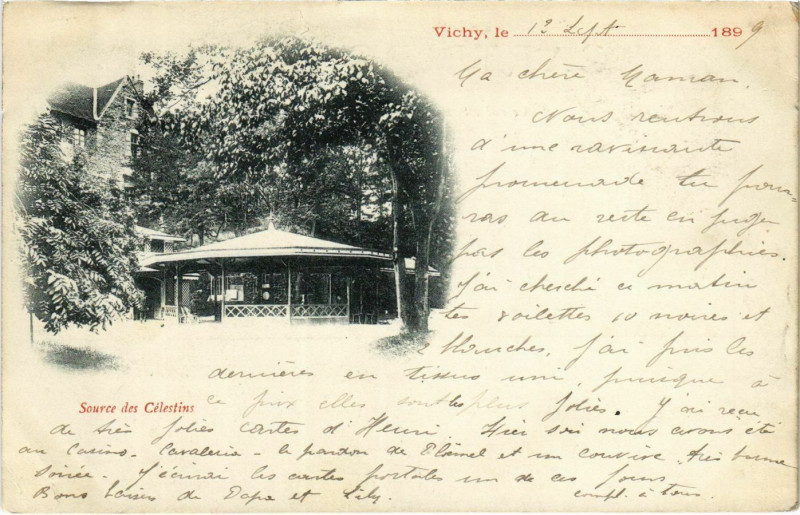 Vichy, le 13 Sept 1899
Ma chère Maman.
Nous rentrons
d'une ravissante
promenade tu pour-
ras du reste en juger
par les photographies.
J'ai cherché ce matin
tes voilettes 10 noires et
2 blanches, j'ai pris les
dernières en tissus uni, puisque à
ce prix elles sont les plus jolies. J'ai reçu
de très jolies cartes d'Henri. Hier soir nous avons été
au Casino. Cavaleria - le pardon de Ploërmel et un . très bonne
soirée. J'écrirai les cartes postales un de ces jours
Bons baisers de Papa et Lily. compl. à tous.
Source des Célestins